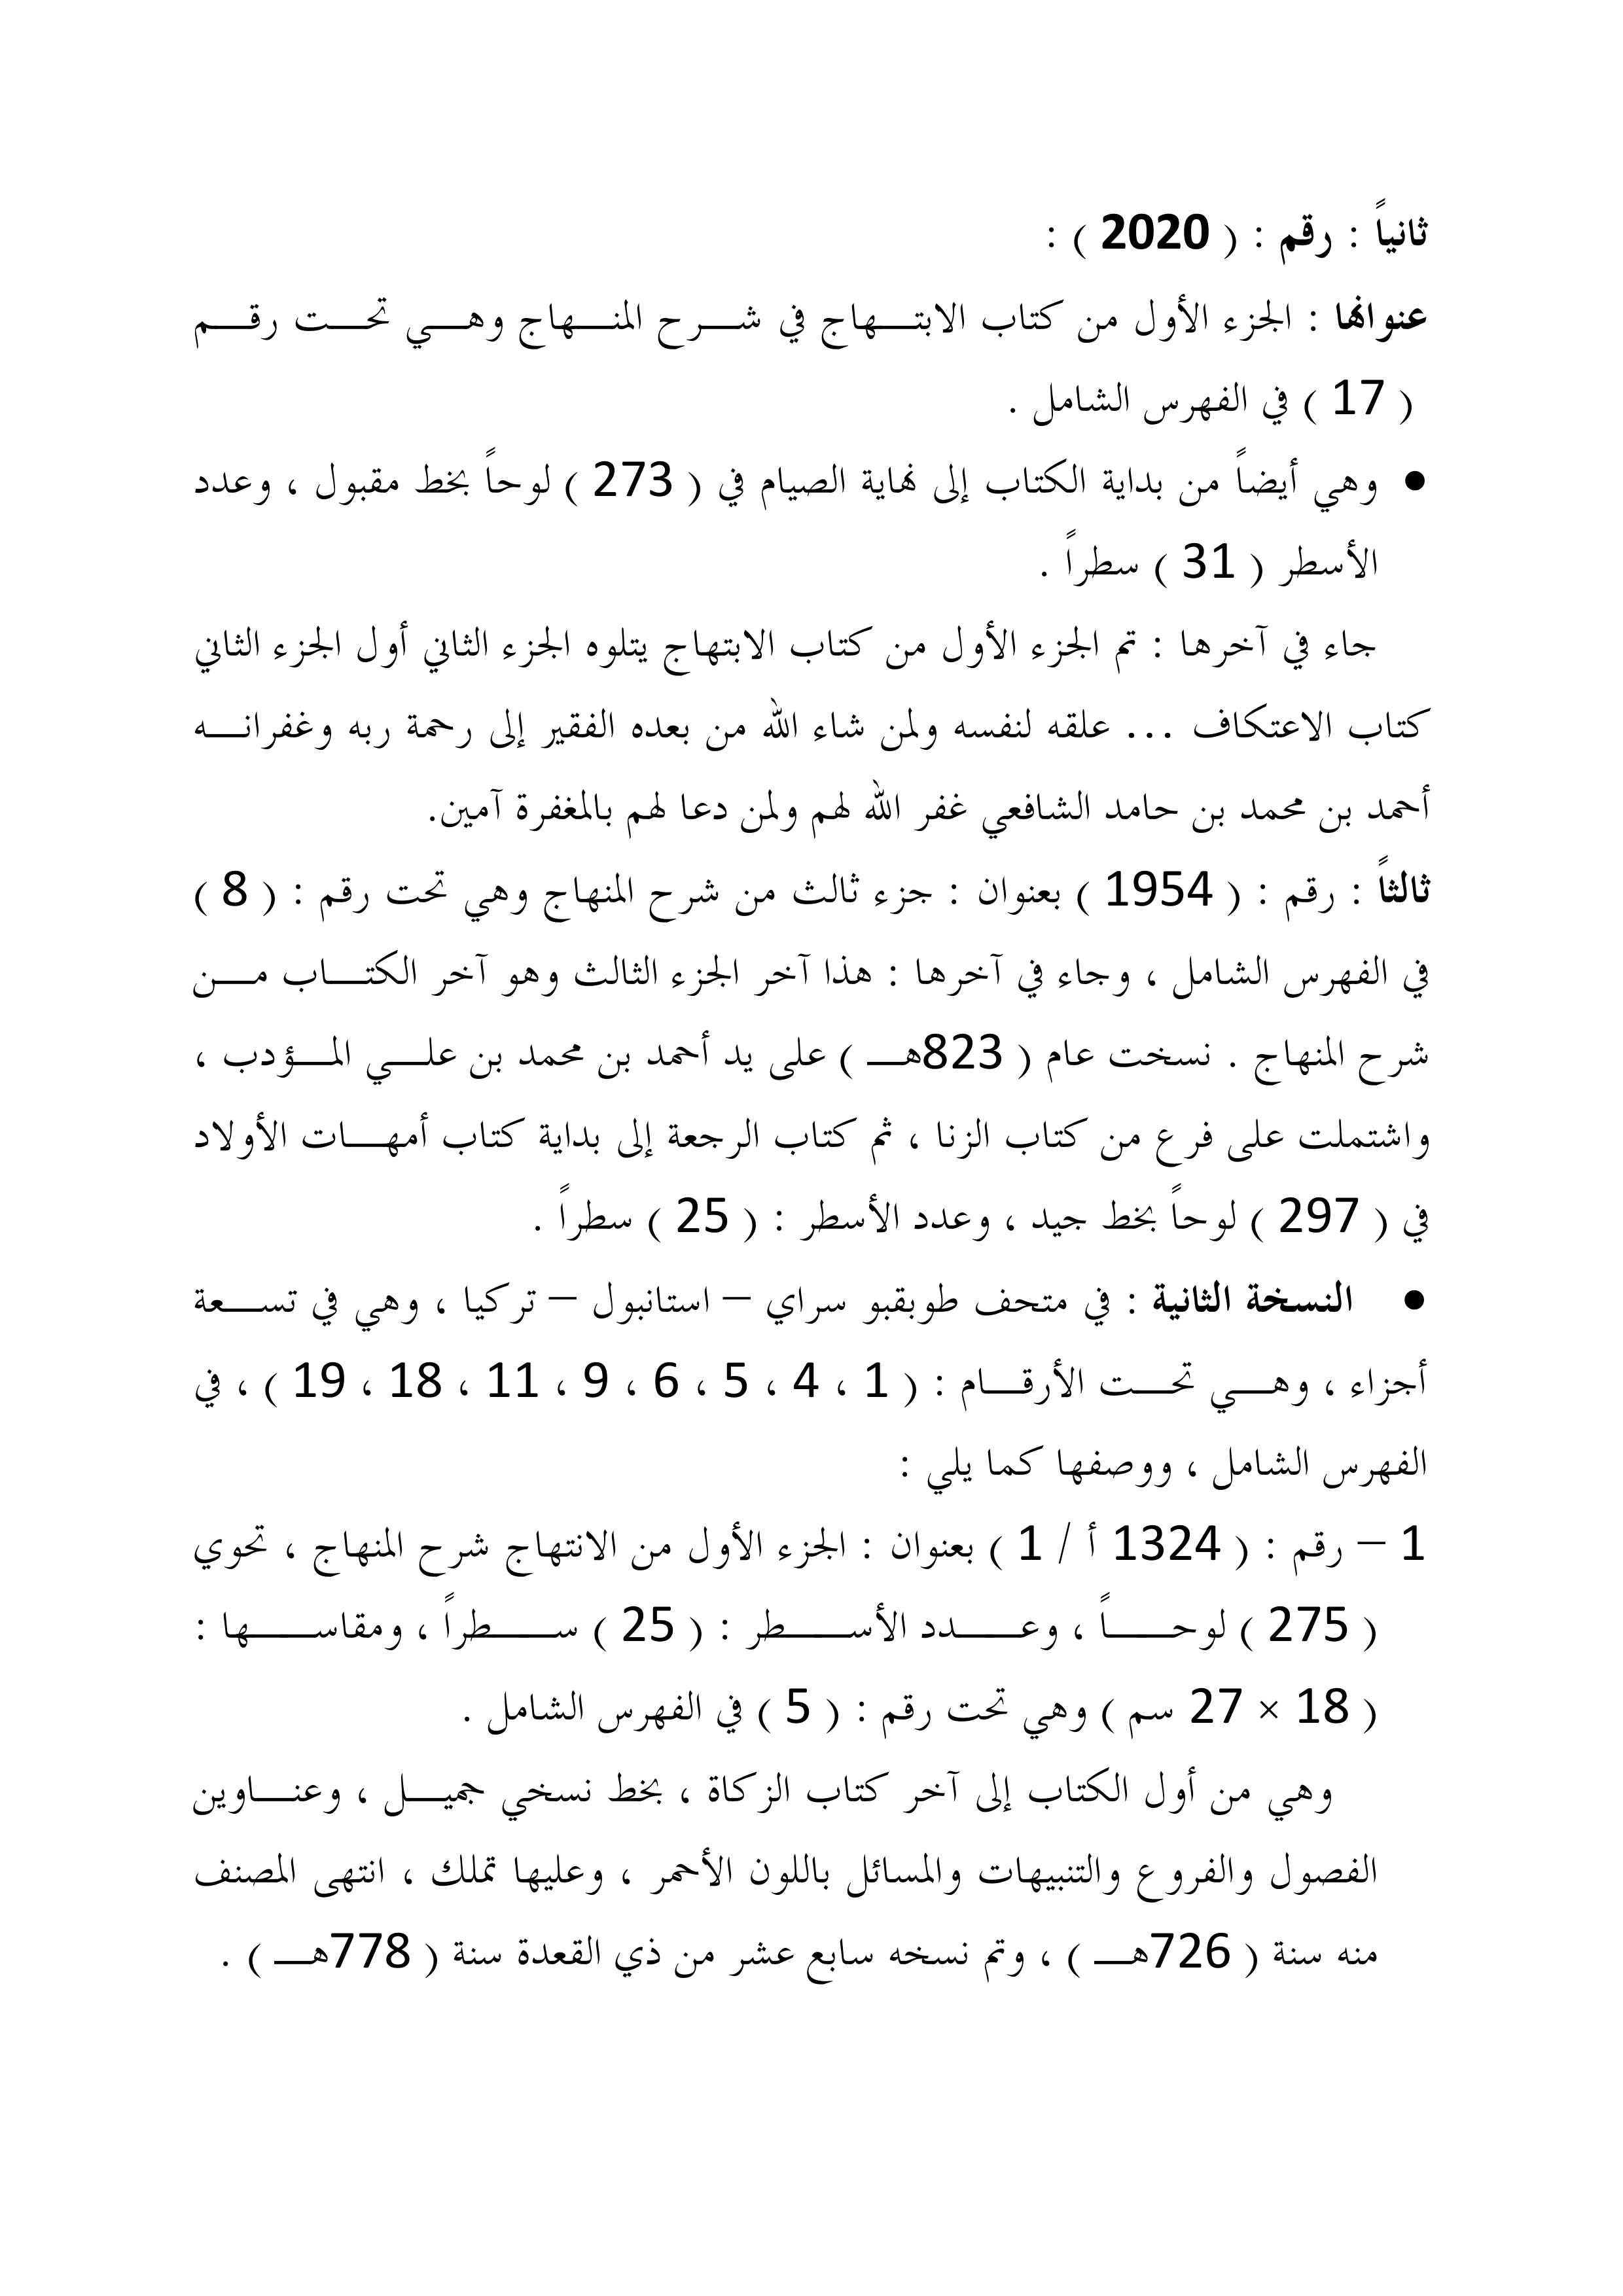 ثانياً : رقم : ( 2020 ) :
عنوانها : الجزء الأول من كتاب الابتهاج في شرح المنهاج وهي تحت رقم
( 17 ) في الفهرس الشامل .
● وهي أيضاً من بداية الكتاب إلى نهاية الصيام في ( 273 ) لوحاً بخط مقبول ، وعدد
الأسطر ( 31 ) سطراً .
جاء في آخرها : تم الجزء الأول من كتاب الابتهاج يتلوه الجزء الثاني أول الجزء الثاني
كتاب الاعتكاف ... علقه لنفسه ولمن شاء الله من بعده الفقير إلى رحمة ربه وغفرانه
أحمد بن محمد بن حامد الشافعي غفر الله لهم ولمن دعا لهم بالمغفرة آمين.
ثالثاً : رقم : ( 1954 ) بعنوان : جزء ثالث من شرح المنهاج وهي تحت رقم : ( 8 )
في الفهرس الشامل ، وجاء في آخرها : هذا آخر الجزء الثالث وهو آخر الكتاب من
شرح المنهاج . نسخت عام ( 823هـ ) على يد أحمد بن محمد بن علي المؤدب ،
واشتملت على فرع من كتاب الزنا ، ثم كتاب الرجعة إلى بداية كتاب أمهات الأولاد
في ( 297 ) لوحاً بخط جيد ، وعدد الأسطر : ( 25 ) سطراً .
● النسخة الثانية : في متحف طوبقبو سراي – استانبول – تركيا ، وهي في تسعة
أجزاء ، وهي تحت الأرقام : ( 1 ، 4 ، 5 ، 6 ، 9 ، 11 ، 18 ، 19 ) ، في
الفهرس الشامل ، ووصفها كما يلي :
1 – رقم : ( 1324 أ / 1 ) بعنوان : الجزء الأول من الانتهاج شرح المنهاج ، تحوي
( 275 ) لوحاً ، وعدد الأسطر : ( 25 ) سطراً ، ومقاسها :
( 18 × 27 سم ) وهي تحت رقم : ( 5 ) في الفهرس الشامل .
وهي من أول الكتاب إلى آخر كتاب الزكاة ، بخط نسخي جميل ، وعناوين
الفصول والفروع والتنبيهات والمسائل باللون الأحمر ، وعليها تملك ، انتهى المصنف
منه سنة ( 726هـ ) ، وتم نسخه سابع عشر من ذي القعدة سنة ( 778هـ ) .